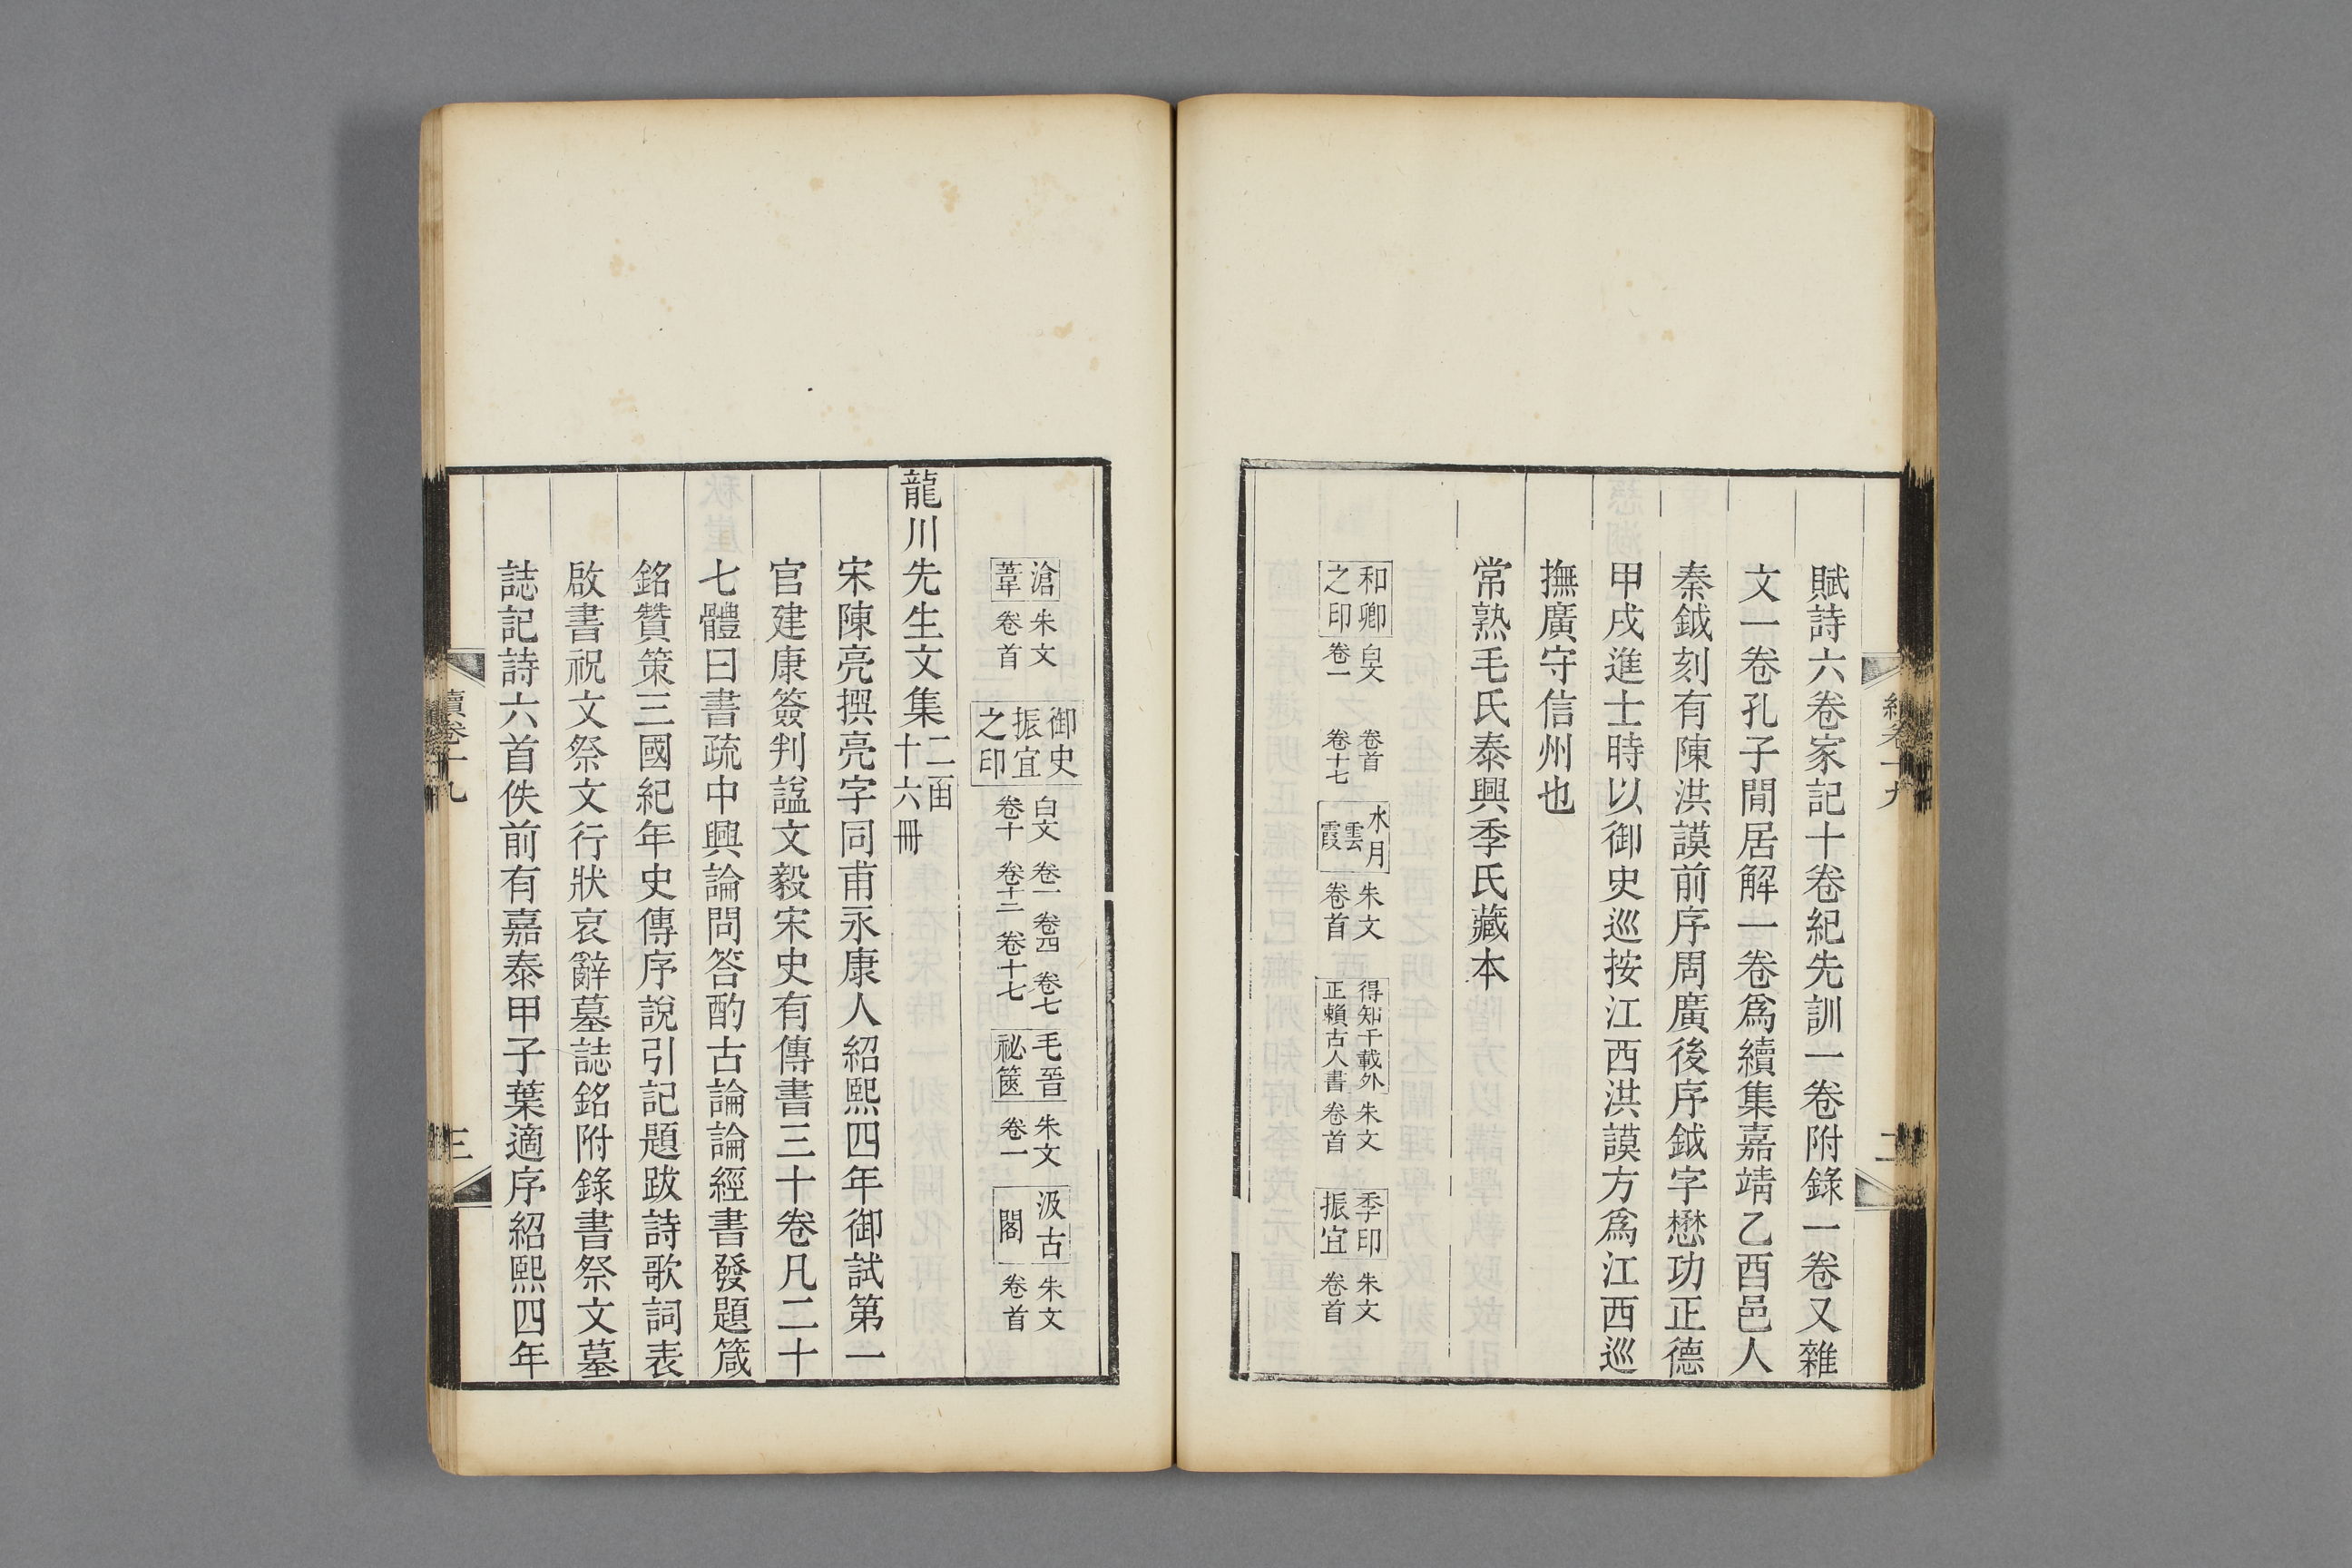 賦詩六卷家記十卷紀先訓一卷附錄一卷又雜
文一卷孔子閒居解一卷爲續集嘉靖乙酉邑人
秦鉞刻有陳洪謨前序周廣後序鉞字懋功正德
甲戌進士時以御史巡按江西洪謨方爲江西巡
撫廣守信州也
常熟毛氏泰興季氏藏本
和卿之印 白文 卷一 卷首 卷十七 水月雲霞 朱文 卷首 得知千載外正賴古人書 朱文 卷首 季印振宜 朱文 卷首
滄葦 朱文 卷首 御史振宜之印 白文 卷一 卷四 卷七 卷十 卷十二 卷十七 毛晉祕篋 朱文 卷一 汲古閣 朱文 卷首
龍川先生文集 二函十六冊
宋陳亮撰亮字同甫永康人紹熙四年御試第一
官建康簽判諡文毅宋史有傳書三十卷凡二十
七體曰書疏中興論問答酌古論論經書發題箴
銘贊策三國紀年史傳序說引記題跋詩歌詞表
啟書祝文祭文行狀哀辭墓誌銘附錄書祭文墓
誌記詩六首佚前有嘉泰甲子葉適序紹熙四年
續卷十九
三